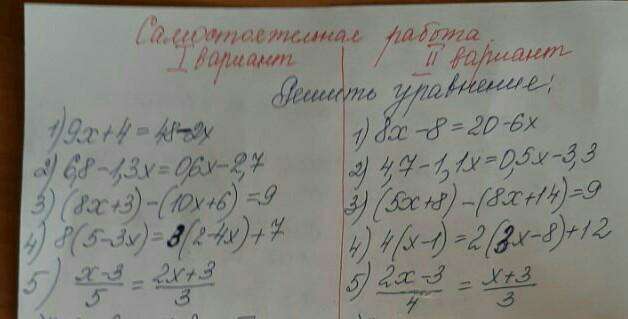 Самостоятельная работа
I вариант
II вариант
Решить уравнение:
1) 9x+4=48-2x
2) 6,8-1,3x=0,6x-2,7
3) (8x+3)-(10x+6)=9
4) 8(5-3x)=3(2-4x)+7
5) x-3/5 = 2x+3/3
1) 8x-8=20-6x
2) 4,7-1,1x=0,5x-3,3
3) (5x+8)-(8x+14)=9
4) 4(x-1)=2(3x-8)+12
5) 2x-3/4 = x+3/3